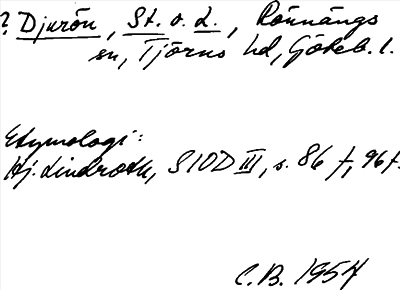 ? Djurön, St. o. L., Rönnängs
sn, Tjörns hd, Göteb. l.
Etymologi:
Hj. Lindroth, SIOD III, s. 86 f, 96 f.
C.B. 1954